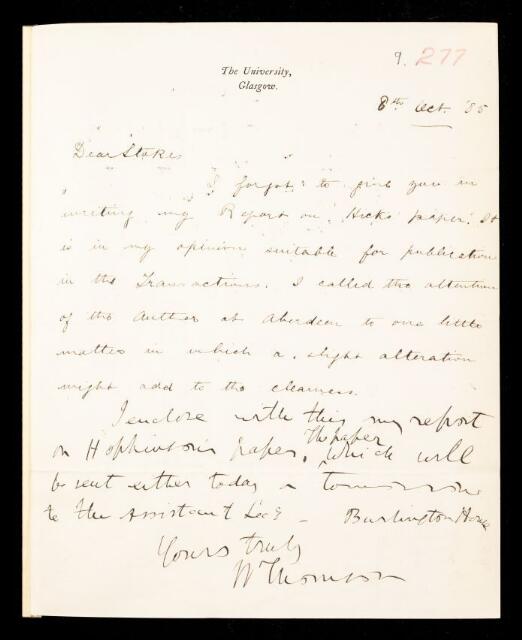 9. 277
The University,
Glasgow.
8th Oct. '85
Dear Stokes
I forgot to give you in
writing my Report on Hicks' paper. It
is in my opinion suitable for publication
in the Transactions. I called the attention
of the Author at Aberdeen to one little
matter in which a slight alteration
might add to the clearness.
I enclose with this my report
on Hopkinson's paper,
the paper
which will
be sent either today or tomorrow
to the Assistant Secy – Burlington House
Yours truly
Wm Thomson